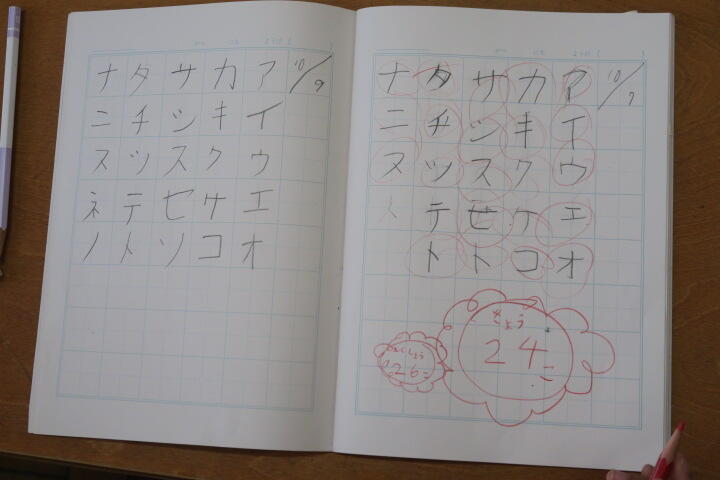 10/7
アイウエオ
カキクケコ
サシスセト
タチツテト
ナニヌ
きょう
24こ
10/9
アイウエオ
カキクケコ
サシスセソ
タチツテト
ナニスネノ